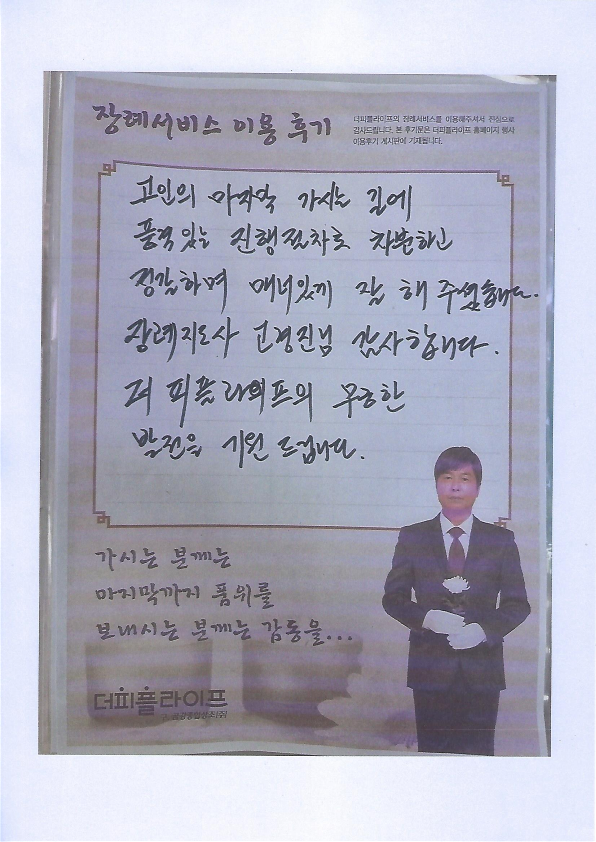 장례서비스 이용 후기
더피플라이프의 장례서비스를 이용해주셔서 진심으로
감사드립니다. 본 후기문은 더피플라이프 홈페이지 행사
이용후기 게시판에 기재됩니다.
고인의 마지막 가시는 길에
품격있는 진행절차로 차분하고
정감하며 매너있게 잘 해 주셨습니다.
장례지도사 고경진님 감사합니다.
더 피플라이프의 무궁한
발전을 기원 드립니다.
가시는 분께는
마지막까지 품위를
보내시는 분께는 감동을...
더피플라이프